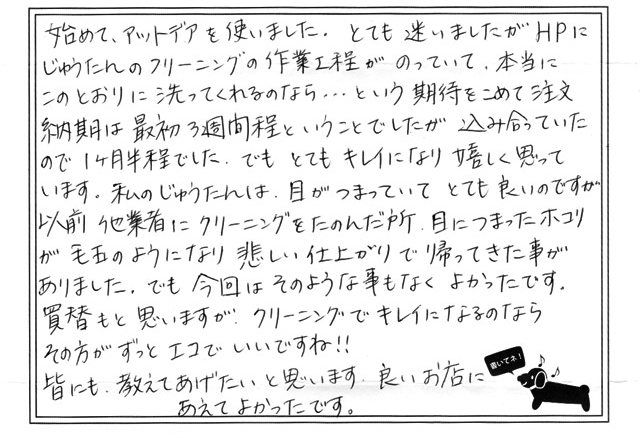 始めて、アットデアを使いました。とても迷いましたがHPに
じゅうたんのクリーニングの作業工程がのっていて、本当に
このとおりに洗ってくれるのなら…という期待をこめて注文
納期は最初3週間程ということでしたが込み合っていた
ので1ヶ月半程でした。でもとてもキレイになり嬉しく思って
います。私のじゅうたんは、目がつまっていてとても良いのですが
以前他業者にクリーニングをたのんだ所、目につまったホコリ
が毛玉のようになり悲しい仕上がりで帰ってきた事が
ありました。でも今回はそのような事もなくよかったです。
買替もと思いますが、クリーニングでキレイになるのなら
その方がずっとエコでいいですね!!
皆にも、教えてあげたいと思います。良いお店に
あえてよかったです。
書いてネ!